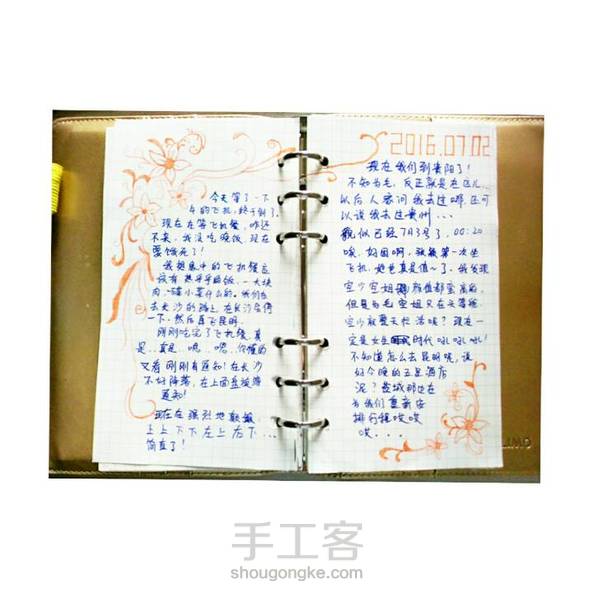 今天等了一下
午的飞机,终于到了。
现在在等飞机餐,咋还
不来,我没吃晚饭,现在
要饿死了!
我想象中的飞机餐应
该有热乎乎的饭,一大块
肉,一碟小菜什么的。我们在
去长沙的路上,在长沙停
一下,然后直飞昆明...
刚刚吃完了飞机餐,真
是..真是..嗯..嗯..你懂的
又有刚刚有通知!在长沙
不好降落,在上面直接
通知!
现在在强烈地颠簸,
上上下下左上右下...
简直了!
2016.07.02
现在我们到贵阳了!
不知为毛,反正就是在这儿,
以后人家问我去过哪,还可
以说我去过贵州...
貌似已经7月3号了,00:20
唉,好困啊,我第一次坐
飞机,她也真是值~了。我发现
空少空姐颜值都蛮高的,
但是为毛空姐只在头等舱
空少就要去忙活呢?现在一
定是女生时代吼吼吼!
不知道怎么去昆明呢,说
好今晚的五星酒店
呢?
为我们重新安
排行程哎哎
哎....
LIMO
手工客
shougongke.com